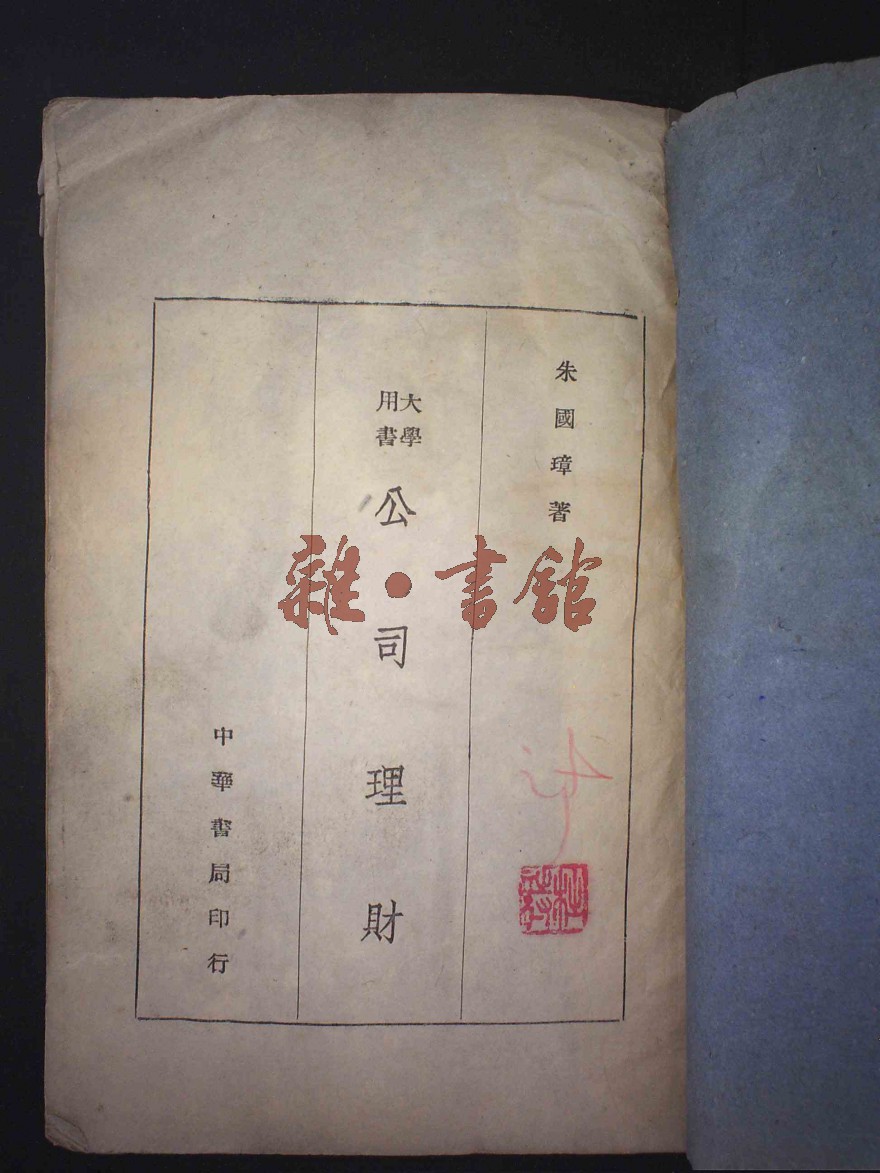 朱國璋著
大學
用書
公司理財
中華書局印行
雜·書館